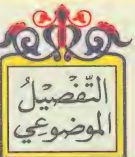 التَّفْصِيْلُ
الموضوعي